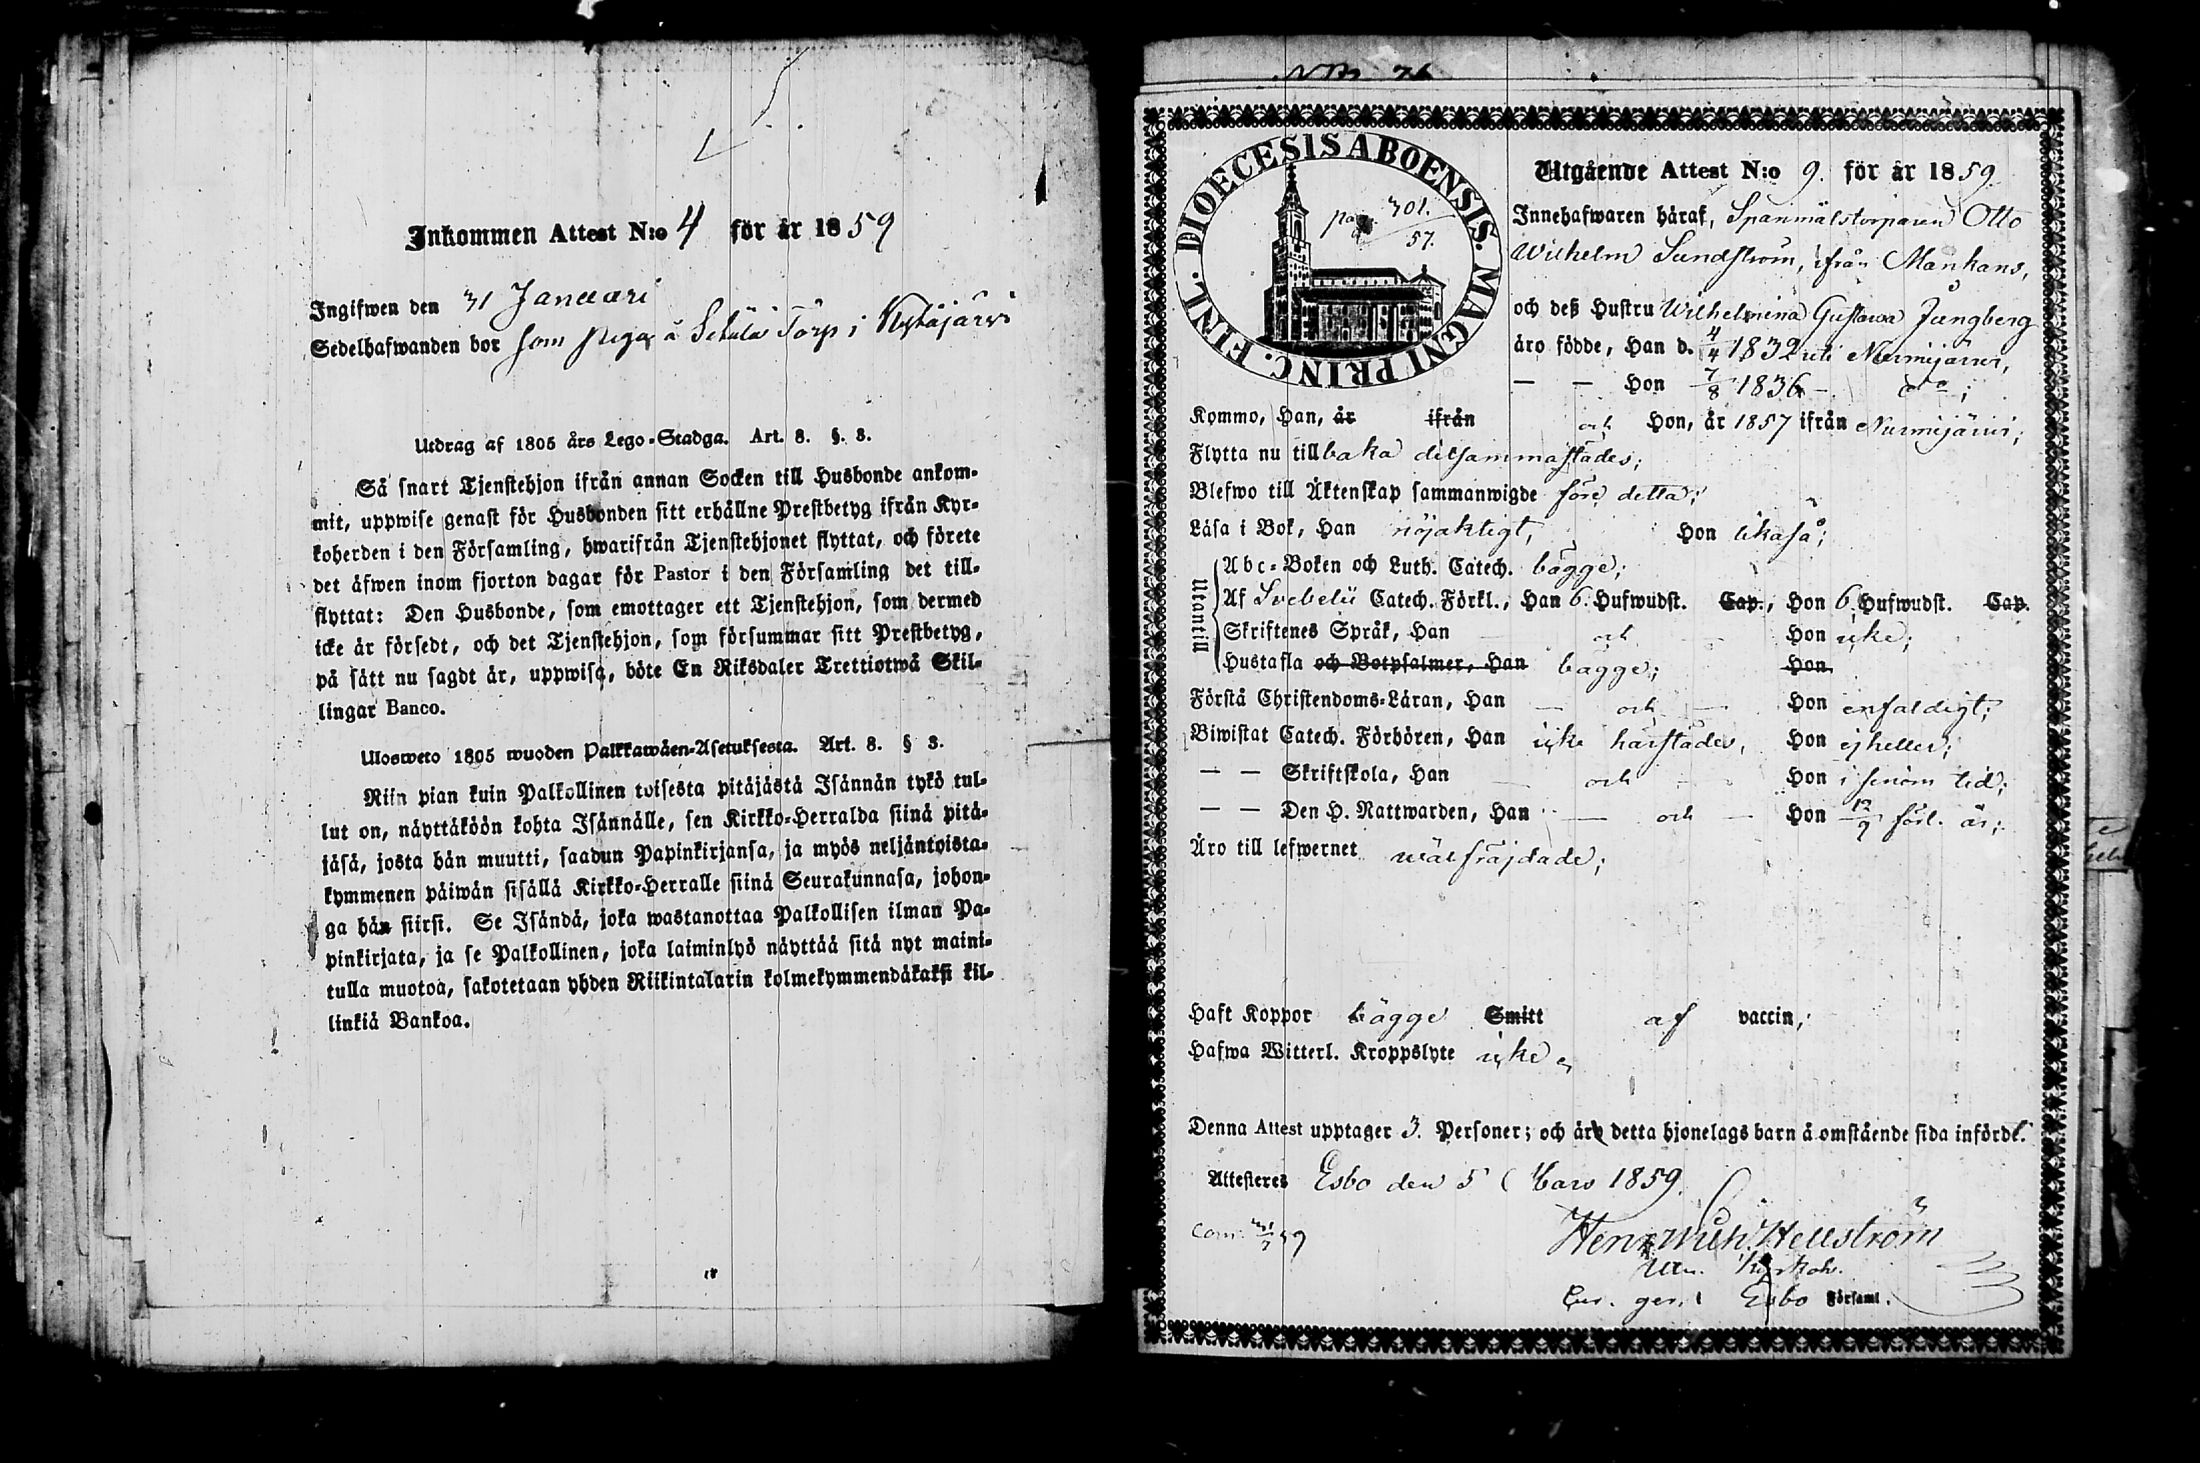 Inkommen Attest N:o 4 för år 1859
Ingifwen den 31 Januari
Sedelhafwanden bor som piga å Setula Torp i Nytäjärwi
Utdrag af 1805 års Lego-Stadga. Art. 8. §. 3.
Så snart Tjenstehjon ifrån annan Socken till Husbonde ankom-
mit, uppwise genast för Husbonden sitt erhållne Prestbetyg ifrån Kyr-
koherden i den Församling, hwarifrån Tjenstehjonet flyttat, och förete
det äfwen inom fjorton dagar för Pastor i den Församling det till-
flyttat: Den Husbonde, som emottager ett Tjenstehjon, som dermed
icke är försedt, och det Tjenstehjon, som försummar sitt Prestbetyg,
på sätt nu sagdt är, uppwisa, böte En Riksdaler Trettiotwå Skil-
lingar Banco.
Ulosweto 1805 wuoden Palkkawäen-Asetuksesta. Art. 8. § 3.
Niin pian kuin Palkollinen toisesta pitäjästä Isännän tykö tul-
lut on, näyttäköön kohta Isännälle, sen Kirkko-Herralda siinä pitä-
jäsä, josta hän muutti, saadun Papinkirjansa, ja myös neljäntoista-
kymmenen päiwän sisällä Kirkko-Herralle siinä Seurakunnasa, johon-
ga hän siirsi. Se Isändä, joka wastanottaa Palkollisen ilman Pa-
pinkirjata, ja se Palkollinen, joka laiminlyö näyttää sitä nyt maini-
tulla muotoa, sakotetaan yhden Riikintalarin kolmekymmendäkaksi kil-
linkiä Bankoa.
DIOECESIS ABOENSIS. MAGNI PRINC. FINL.
pag. 301.
57.
Utgående Attest N:o 9. för år 1859
Innehafwaren häraf, Spanmålstorparen Otto
Wilhelm Sundström, ifrån Mankans,
och deß Hustru Wilhelmina Gustava Ljungberg
äro födde, Han d. 4/4 1832 uti Nurmijärvi,
— — Hon 7/8 1836 — do;
Kommo, Han, år ifrån och Hon, år 1857 ifrån Nurmijärvi;
Flytta nu tillbaka detsammastädes;
Blefwo till Äktenskap sammanwigde före detta;
Läsa i Bok, Han nöjaktigt, Hon likaså;
Utantill
Abc-Boken och Luth. Catech. bägge;
Af Svebelii Catech. Förkl., Han 6. Hufwudst. Cap., Hon 6. Hufwudst. Cap.
Skriftenes Språk, Han — och — Hon icke;
Hustafla och Botpsalmer, Han bägge; Hon
Förstå Christendoms-Läran, Han — och — Hon enfaldigt;
Biwistat Catech. Förhören, Han icke härstädes, Hon ej heller;
— — Skriftskola, Han — och — Hon i sinom tid;
— — Den H. Nattwarden, Han — och — Hon 12/9 förl. år;
Äro till lefwernet wälfräjdade;
Haft Koppor bägge Smitt af vaccin;
Hafwa Witterl. Kroppslyte icke
Denna Attest upptager 3. Personer; och äro detta hjonelags barn å omstående sida införde.
Attesteras Esbo den 5 Mars 1859.
Henr. Wilh. Hellström
Församl.
Esbo